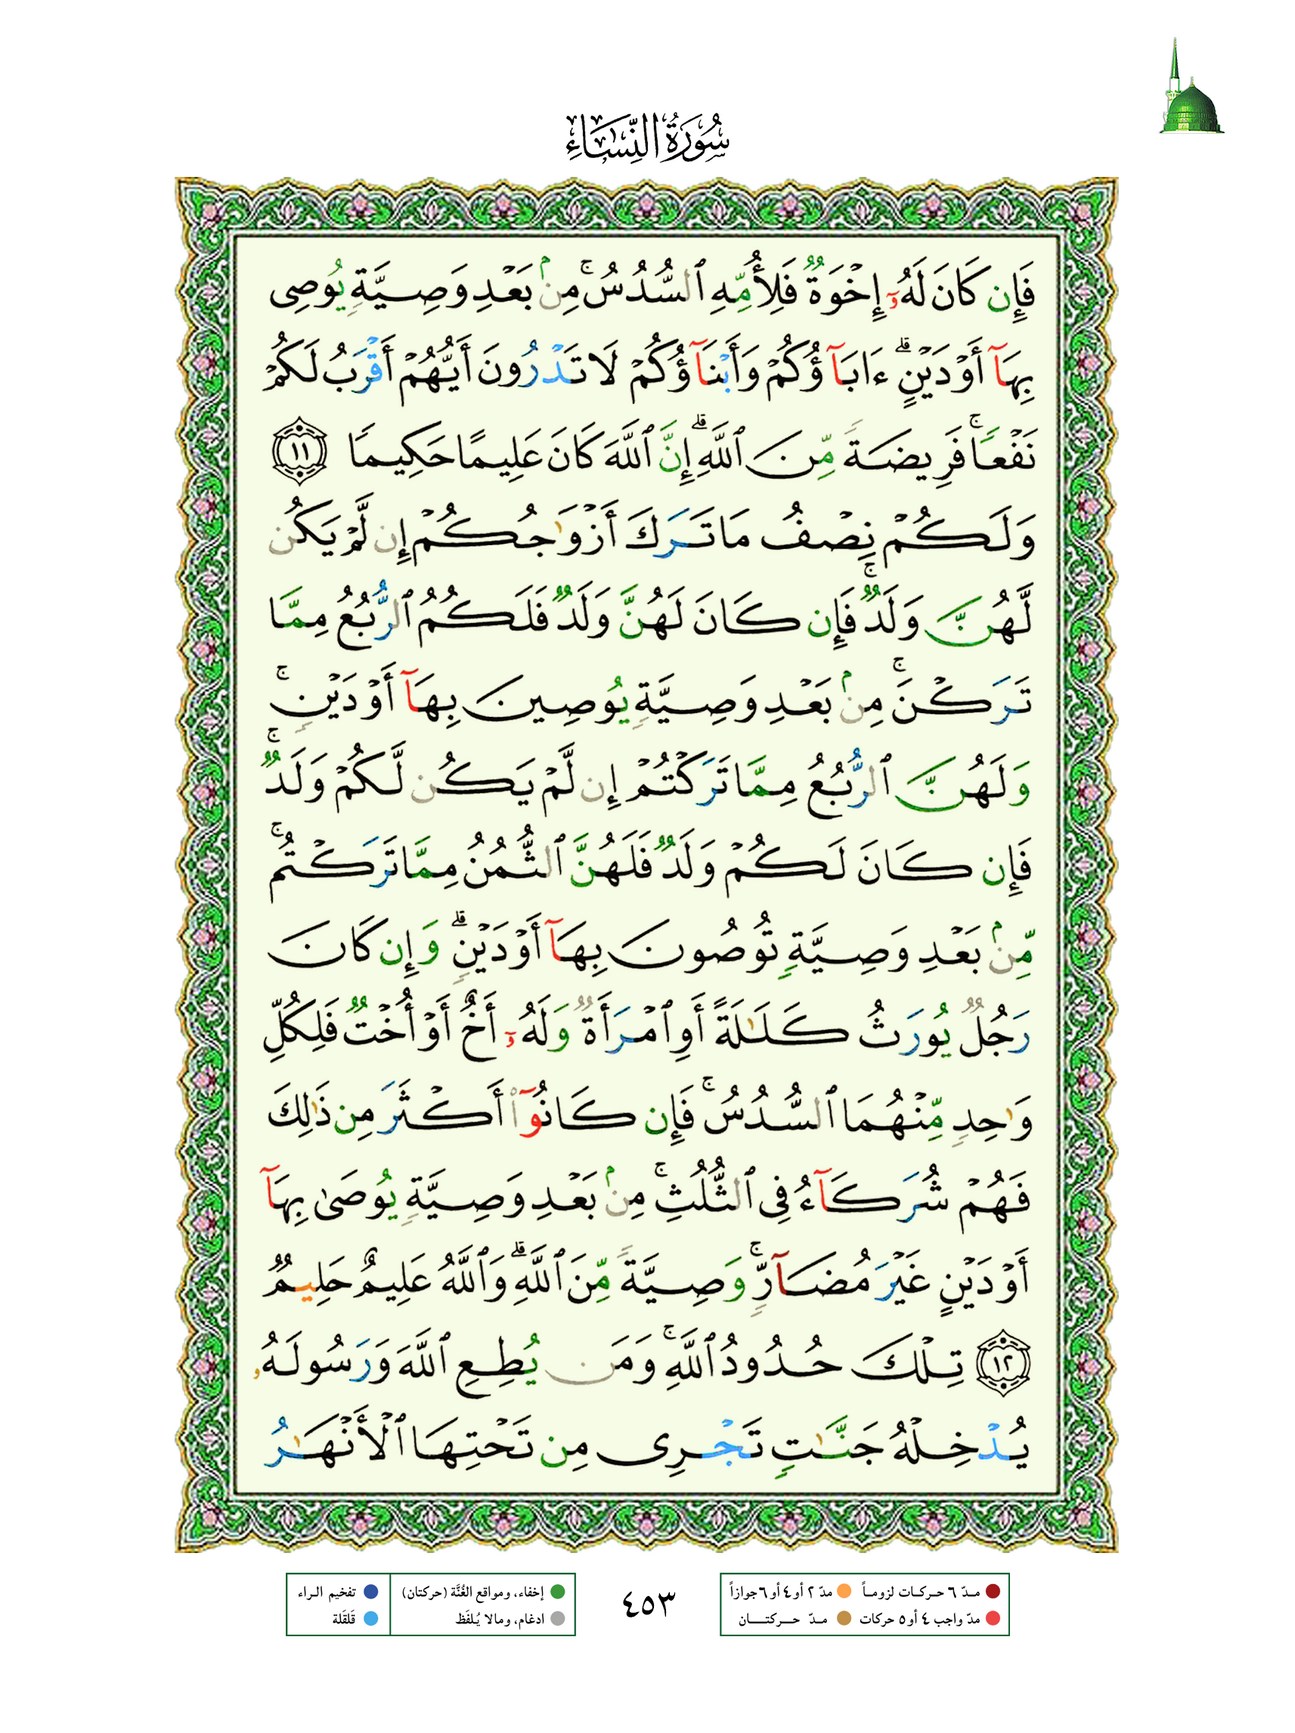 سُورَةُ النِّسَاءِ
فَإِن كَانَ لَهُۥٓ إِخْوَةٌ فَلِأُمِّهِ ٱلسُّدُسُ ۚ مِنۢ بَعْدِ وَصِيَّةٍ يُوصِى
بِهَآ أَوْ دَيْنٍ ۗ ءَابَآؤُكُمْ وَأَبْنَآؤُكُمْ لَا تَدْرُونَ أَيُّهُمْ أَقْرَبُ لَكُمْ
نَفْعًا ۚ فَرِيضَةً مِّنَ ٱللَّهِ ۗ إِنَّ ٱللَّهَ كَانَ عَلِيمًا حَكِيمًا ١١
وَلَكُمْ نِصْفُ مَا تَرَكَ أَزْوَٰجُكُمْ إِن لَّمْ يَكُن
لَّهُنَّ وَلَدٌ ۚ فَإِن كَانَ لَهُنَّ وَلَدٌ فَلَكُمُ ٱلرُّبُعُ مِمَّا
تَرَكْنَ ۚ مِنۢ بَعْدِ وَصِيَّةٍ يُوصِينَ بِهَآ أَوْ دَيْنٍ ۚ
وَلَهُنَّ ٱلرُّبُعُ مِمَّا تَرَكْتُمْ إِن لَّمْ يَكُن لَّكُمْ وَلَدٌ ۚ
فَإِن كَانَ لَكُمْ وَلَدٌ فَلَهُنَّ ٱلثُّمُنُ مِمَّا تَرَكْتُم ۚ
مِّنۢ بَعْدِ وَصِيَّةٍ تُوصُونَ بِهَآ أَوْ دَيْنٍ ۗ وَإِن كَانَ
رَجُلٌ يُورَثُ كَلَـٰلَةً أَوِ ٱمْرَأَةٌ وَلَهُۥٓ أَخٌ أَوْ أُخْتٌ فَلِكُلِّ
وَٰحِدٍ مِّنْهُمَا ٱلسُّدُسُ ۚ فَإِن كَانُوٓا۟ أَكْثَرَ مِن ذَٰلِكَ
فَهُمْ شُرَكَآءُ فِى ٱلثُّلُثِ ۚ مِنۢ بَعْدِ وَصِيَّةٍ يُوصَىٰ بِهَآ
أَوْ دَيْنٍ غَيْرَ مُضَآرٍّ ۚ وَصِيَّةً مِّنَ ٱللَّهِ ۗ وَٱللَّهُ عَلِيمٌ حَلِيمٌ
١٢ تِلْكَ حُدُودُ ٱللَّهِ ۚ وَمَن يُطِعِ ٱللَّهَ وَرَسُولَهُۥ
يُدْخِلْهُ جَنَّـٰتٍ تَجْرِى مِن تَحْتِهَا ٱلْأَنْهَـٰرُ
مـدّ ٦ حـركـات لزومـاً مدّ ٢ أو ٤ أو ٦ جوازاً
مدّ واجب ٤ أو ٥ حركات مـدّ حــركتــــان
٤٥٣
إخفاء، ومواقع الغُنَّة (حركتان) تفخيم الـراء
ادغام، ومالا يُـلفَظ قَلقَلة